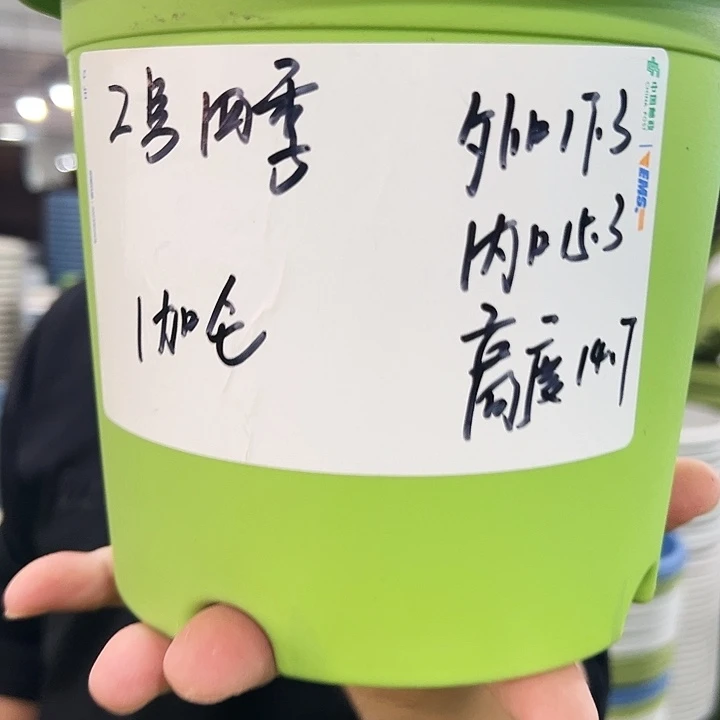 2号四季
1加仑
外口17.3
内口15.3
高度14.7
中国邮政
CHINA POST
EMS